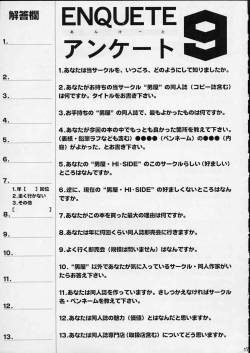 解答欄
ENQUETE
あんけーと
アンケート
9
1.
2.
3.
4.
5.
6.
7.
1.年[ ]回位
2.全く行かない
3.その他
[ ]
8.
9.
10.
11.
12.
13.
1.あなたは当サークルを、いつごろ、どのようにして知りましたか。
2.あなたがお持ちの当サークル“男屋”の同人誌（コピー誌含む）
は何ですか。タイトルをお書き下さい。
3.お手持ちの“男屋”の同人誌で、最もよかったものは何ですか。
4.あなたが今回の本の中でもっとも良かった箇所を教えて下さい。
（表紙・粉雪ラフなども含む）●●●●（ペンネーム）の●●●（内
容）がよかった、とお書き下さい。
5.あなたの“男屋・HI-SIDE”のこのサークルらしい（好ましい）
ところはなんですか。
6.逆に、現在の“男屋・HI-SIDE”の好ましくないところはなん
ですか。
7.あなたがこの本を買った最大の理由は何ですか。
8.あなたは年に何回くらい同人誌即売会に行きますか。
9.よく行く即売会（規模は問いません）はなんですか。
10.“男屋”以外であなたが気に入っているサークル・同人作家がい
たらお答え下さい。
11.あなたは同人誌を作っていますか。さしつかえなければサークル
名・ペンネームを教えて下さい。
12.あなたは同人誌の魅力（価値）とはなんだと思いますか。
13.あなたは同人誌専門店（取扱店含む）についてどう思いますか。